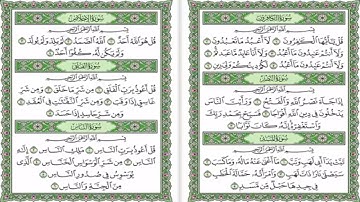 سُورَةُ الْكَافِرُونَ
بِسْمِ اللَّهِ الرَّحْمَٰنِ الرَّحِيمِ
قُلْ يَٰٓأَيُّهَا الْكَٰفِرُونَ ١ لَآ أَعْبُدُ مَا تَعْبُدُونَ ٢
وَلَآ أَنتُمْ عَٰبِدُونَ مَآ أَعْبُدُ ٣ وَلَآ أَنَا۠ عَابِدٌ مَّا عَبَدتُّمْ ٤
وَلَآ أَنتُمْ عَٰبِدُونَ مَآ أَعْبُدُ ٥ لَكُمْ دِينُكُمْ وَلِيَ دِينِ ٦
سُورَةُ النَّصْرِ
بِسْمِ اللَّهِ الرَّحْمَٰنِ الرَّحِيمِ
إِذَا جَآءَ نَصْرُ اللَّهِ وَالْفَتْحُ ١ وَرَأَيْتَ النَّاسَ
يَدْخُلُونَ فِي دِينِ اللَّهِ أَفْوَاجًا ٢ فَسَبِّحْ بِحَمْدِ رَبِّكَ
وَاسْتَغْفِرْهُ إِنَّهُ كَانَ تَوَّابًا ٣
سُورَةُ الْمَسَدِ
بِسْمِ اللَّهِ الرَّحْمَٰنِ الرَّحِيمِ
تَبَّتْ يَدَآ أَبِي لَهَبٍ وَتَبَّ ١ مَآ أَغْنَىٰ عَنْهُ مَالُهُ وَمَا كَسَبَ ٢
سَيَصْلَىٰ نَارًا ذَاتَ لَهَبٍ ٣ وَامْرَأَتُهُ حَمَّالَةَ الْحَطَبِ ٤
فِي جِيدِهَا حَبْلٌ مِّن مَّسَدٍ ٥
سُورَةُ الْإِخْلَاصِ
بِسْمِ اللَّهِ الرَّحْمَٰنِ الرَّحِيمِ
قُلْ هُوَ اللَّهُ أَحَدٌ ١ اللَّهُ الصَّمَدُ ٢ لَمْ يَلِدْ وَلَمْ يُولَدْ ٣
وَلَمْ يَكُن لَّهُ كُفُوًا أَحَدٌ ٤
سُورَةُ الْفَلَقِ
بِسْمِ اللَّهِ الرَّحْمَٰنِ الرَّحِيمِ
قُلْ أَعُوذُ بِرَبِّ الْفَلَقِ ١ مِن شَرِّ مَا خَلَقَ ٢ وَمِن شَرِّ
غَاسِقٍ إِذَا وَقَبَ ٣ وَمِن شَرِّ النَّفَّٰثَٰتِ فِي الْعُقَدِ ٤
وَمِن شَرِّ حَاسِدٍ إِذَا حَسَدَ ٥
سُورَةُ النَّاسِ
بِسْمِ اللَّهِ الرَّحْمَٰنِ الرَّحِيمِ
قُلْ أَعُوذُ بِرَبِّ النَّاسِ ١ مَلِكِ النَّاسِ ٢ إِلَٰهِ
النَّاسِ ٣ مِن شَرِّ الْوَسْوَاسِ الْخَنَّاسِ ٤ الَّذِي
يُوَسْوِسُ فِي صُدُورِ النَّاسِ ٥
مِنَ الْجِنَّةِ وَالنَّاسِ ٦